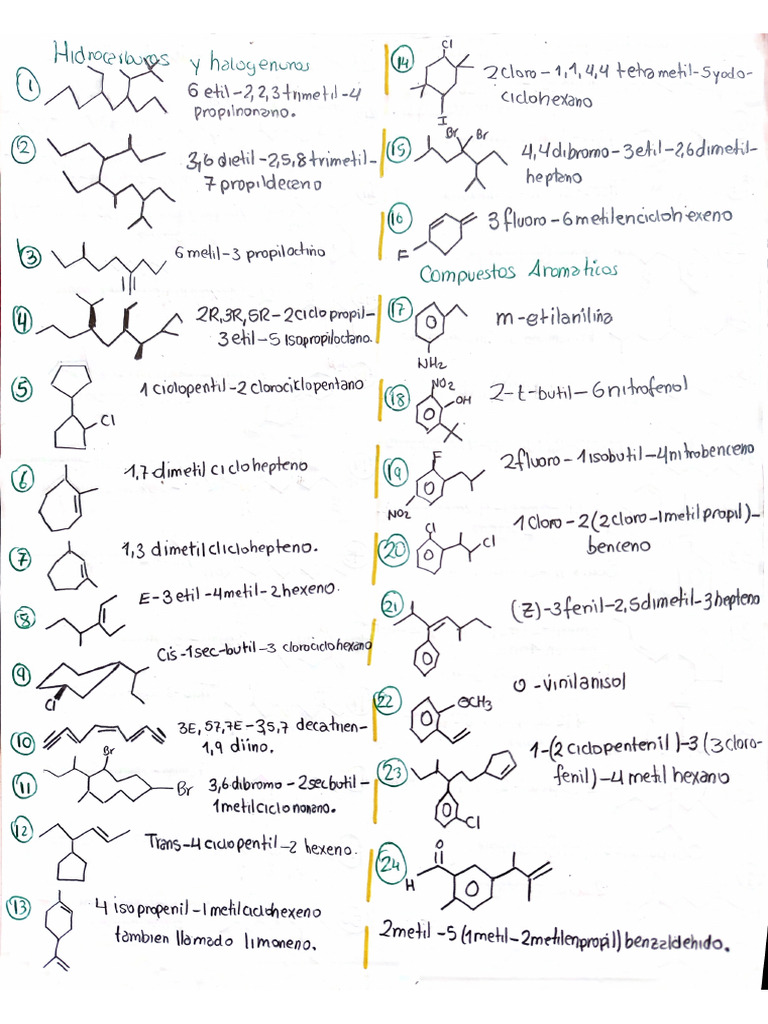 Hidrocarburos y halogenuros
1
6 etil-2,2,3 trimetil-4
propilnonano.
2
3,6 dietil-2,5,8 trimetil-
7 propildecano
3
6 metil-3 propiloctino
4
2R,3R,5R-2ciclopropil-
3etil-5 isopropiloctano.
5
1 ciclopentil-2 clorociclopentano
Cl
6
1,7 dimetil ciclohepteno
7
1,3 dimetilcliclohepteno.
8
E-3 etil-4metil-2hexeno.
9
Cis-1sec-butil-3 clorociclohexano
Cl
10
3E, 5Z,7E-3,5,7 decatrien-
1,9 diino.
11
Br
Br
3,6 dibromo-2secbutil-
1metilciclononano.
12
Trans-4ciclopentil-2 hexeno.
13
4 isopropenil-1metilciclohexeno
tambien llamado limoneno.
14
Cl
I
2cloro-1,1,4,4 tetrametil-5yodo-
ciclohexano
15
Br Br
4,4dibromo-3etil-2,6dimetil-
hepteno
16
F
3 fluoro-6metilenciclohexeno
Compuestos Aromaticos
17
NH2
m-etilanilina
18
NO2
OH
2-t-butil-6nitrofenol
19
F
NO2
2fluoro-1isobutil-4nitrobenceno
20
Cl
Cl
1cloro-2(2cloro-1metilpropil)-
benceno
21
(Z)-3fenil-2,5dimetil-3hepteno
22
OCH3
o-vinilanisol
23
Cl
1-(2ciclopentenil)-3(3cloro-
fenil)-4metil hexano
24
O
H
2metil-5(1metil-2metilenpropil)benzaldehido.